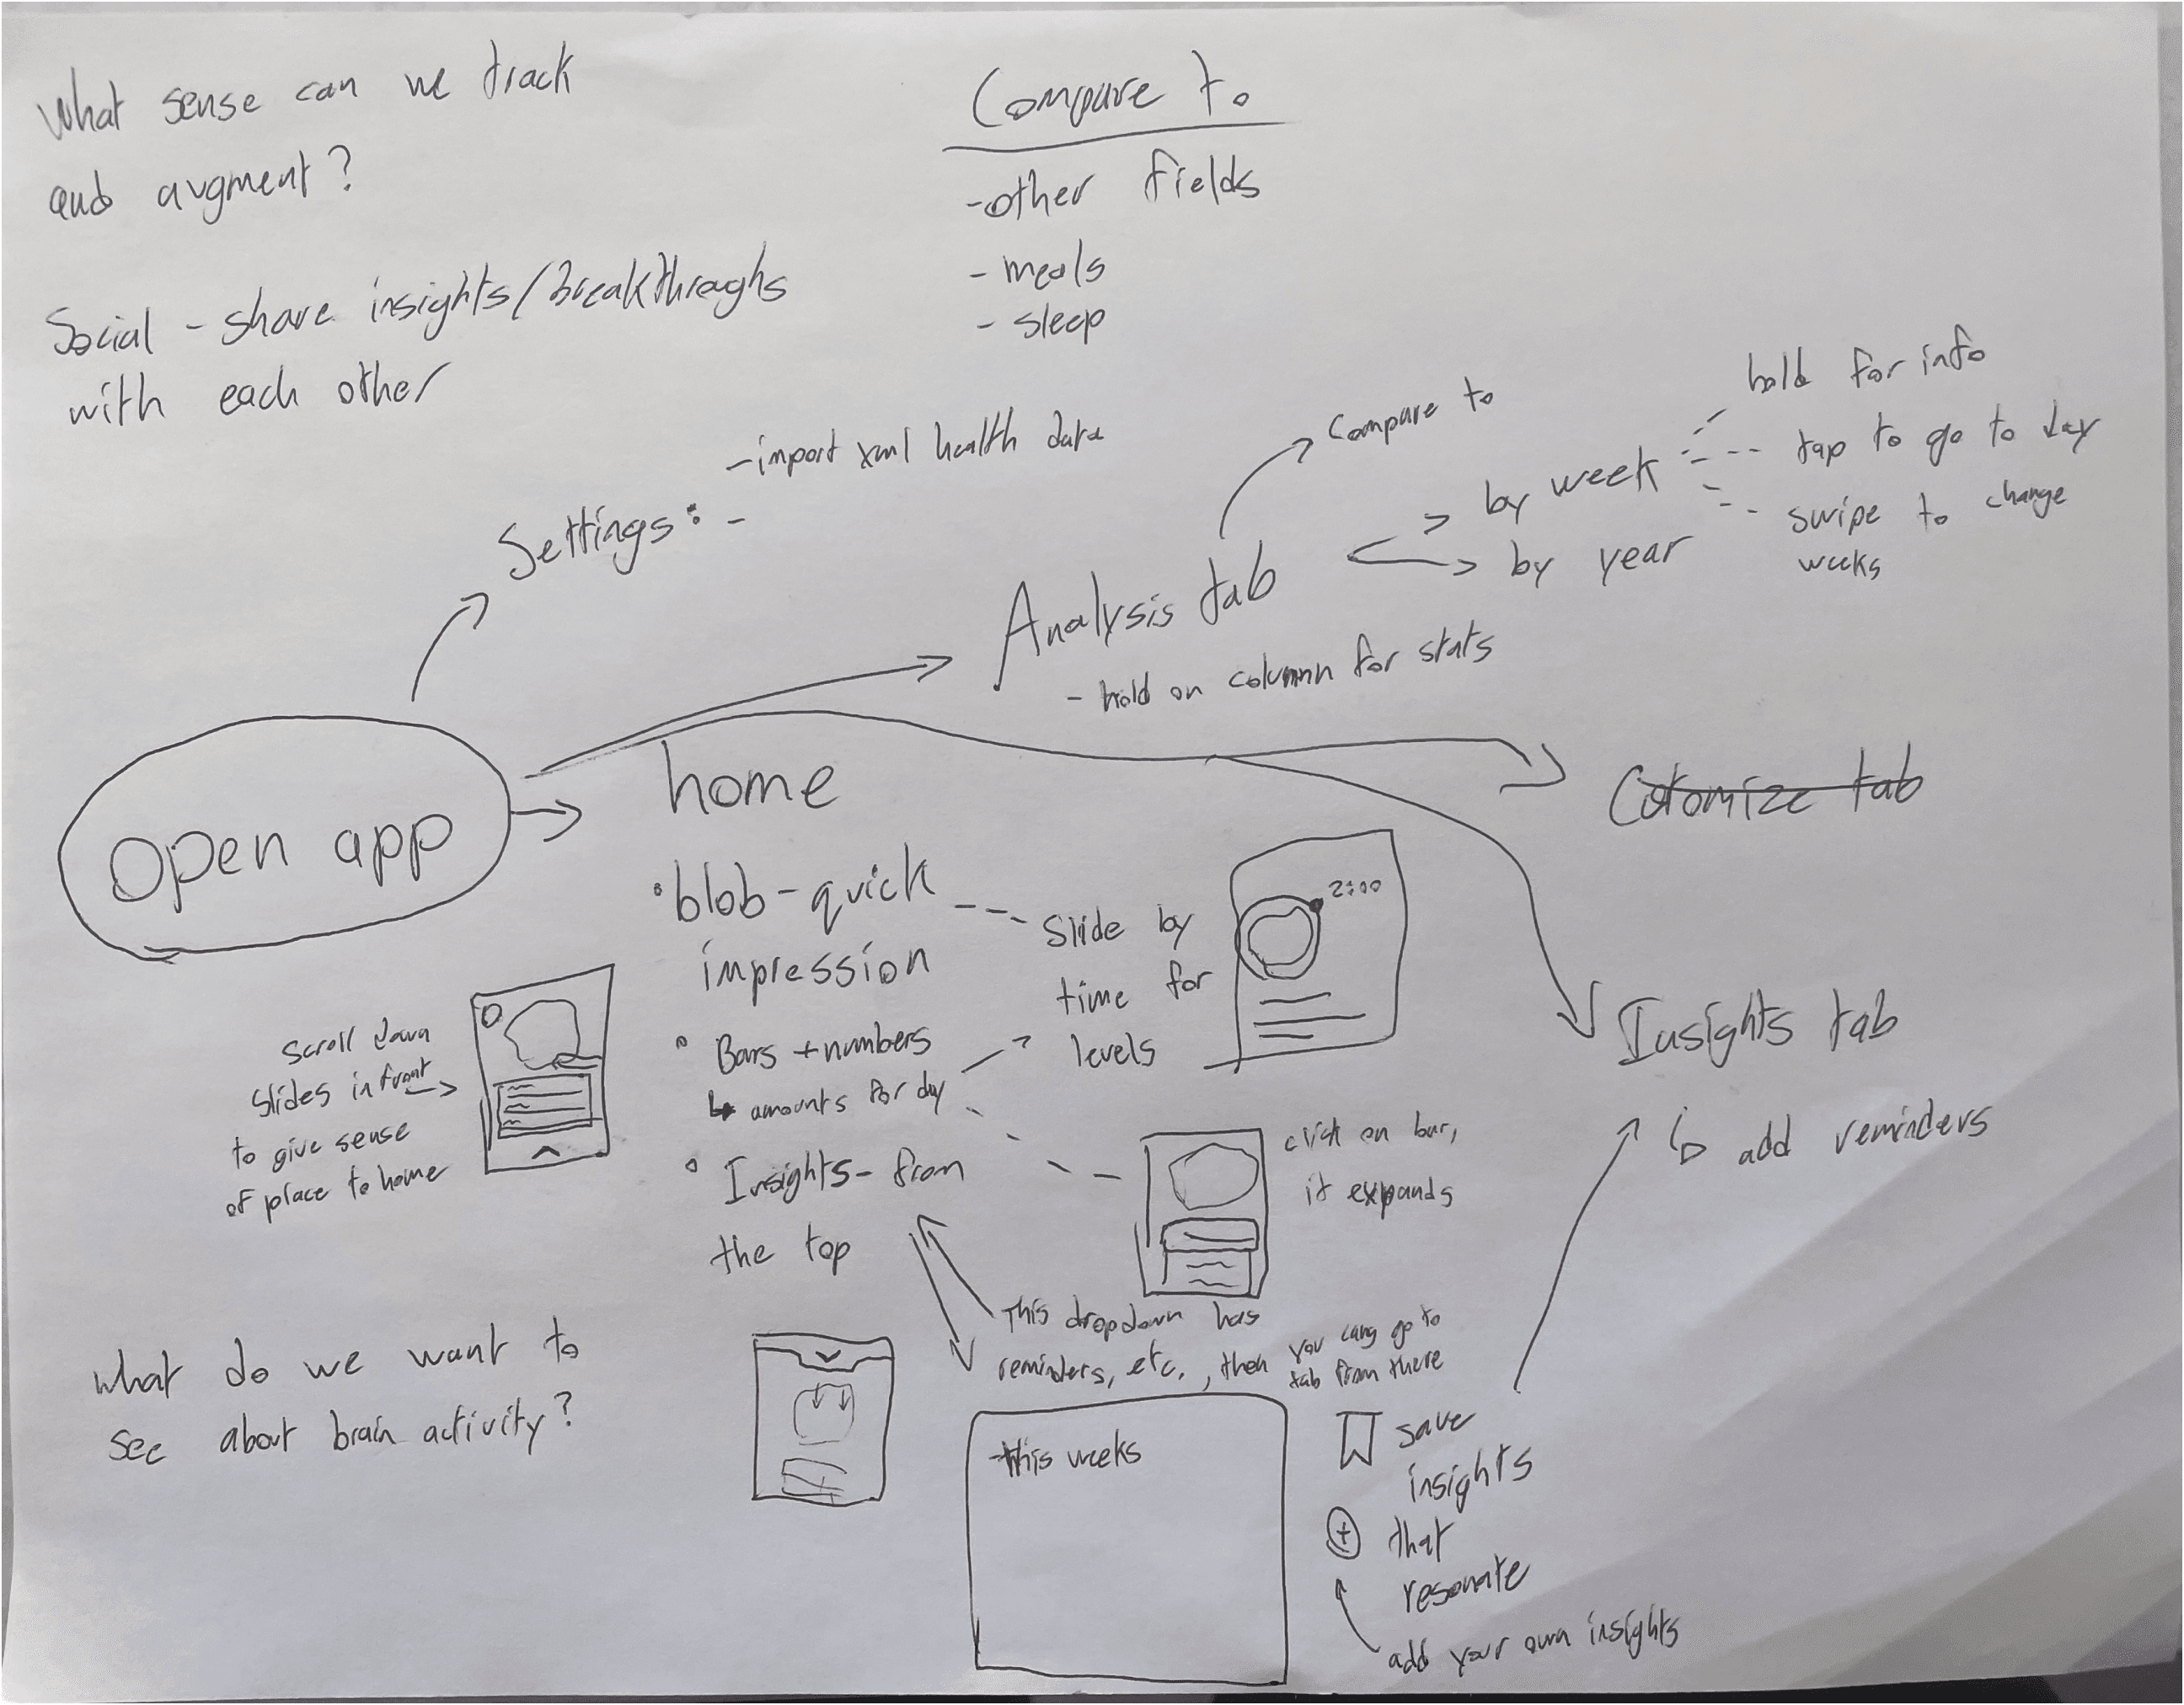 What sense can we track
and augment?
Social - share insights/Breakthroughs
with each other
Compare to
-other fields
- meals
- sleep
Settings: -import xml health data
-
Analysis tab
- hold on column for stats
Compare to
by week
by year
hold for info
tap to go to day
swipe to change
weeks
Open app
home
•blob-quick
impression
• Bars + numbers
↳ amounts for day
• Insights- from
the top
Slide by
time for
levels
2:00
Cutomize tab
Insights tab
↳ add reminders
Scroll down
slides in front
to give sense
of place to home
click on bar,
it expands
This dropdown has
reminders, etc., then you cang go to
tab from there
this weeks
save
insights
that
resonate
add your own insights
what do we want to
see about brain activity?